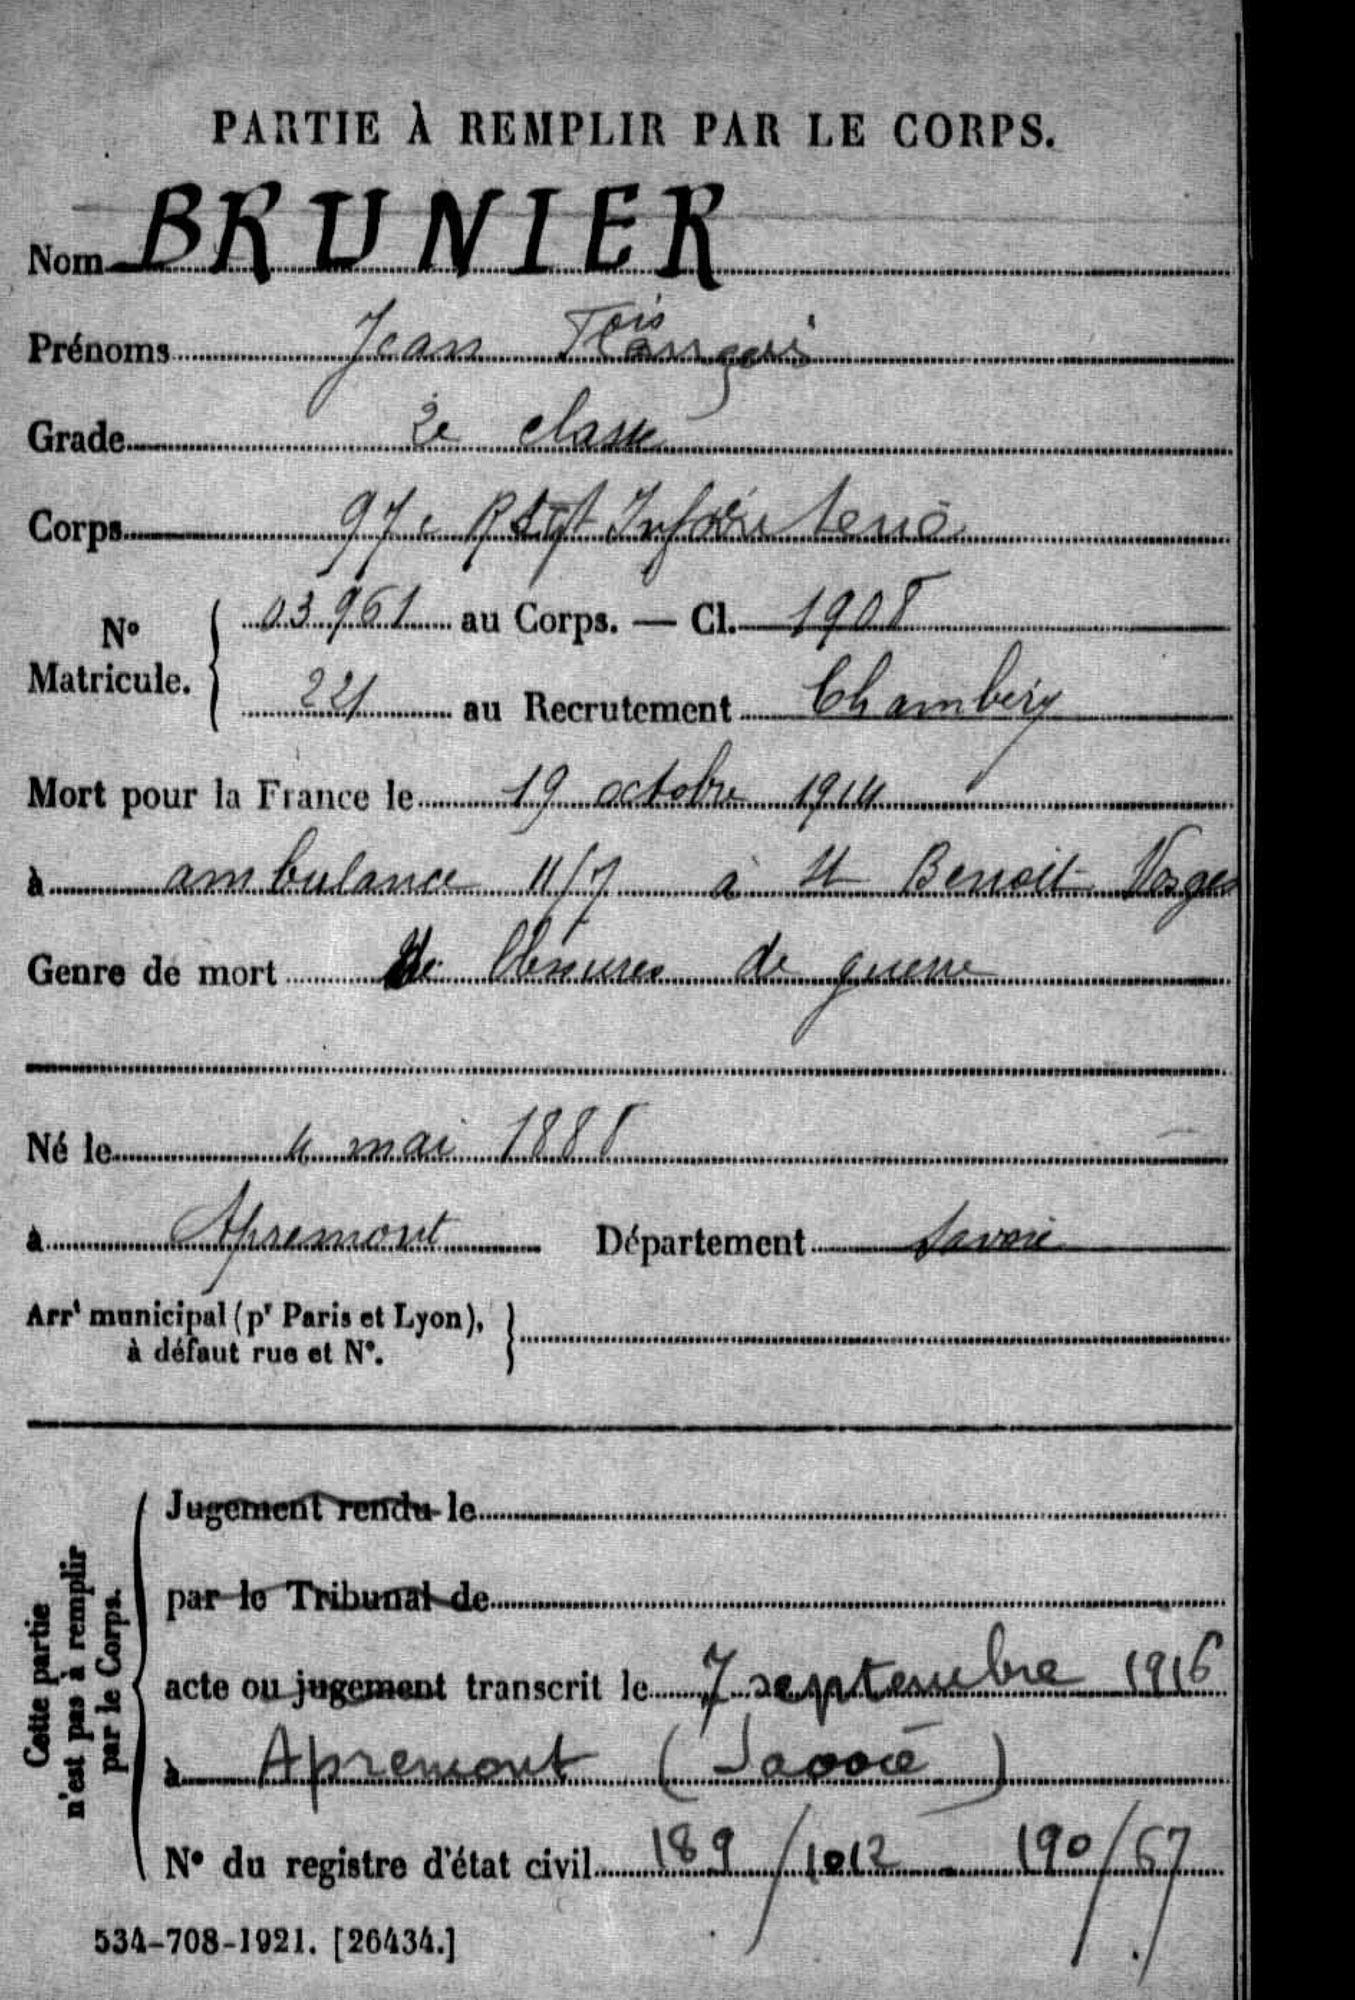 PARTIE À REMPLIR PAR LE CORPS.
Nom BRUNIER
Prénoms Jean François
Grade 2e classe
Corps 97e Rgt Infanterie
N° Matricule. 03961 au Corps. — Cl. 1908
221 au Recrutement Chambéry
Mort pour la France le 19 octobre 1914
à ambulance 11/7 à St Benoit Vosges
Genre de mort de blessures de guerre
Né le 4 mai 1888
à Apremont Département Savoie
Arrt municipal (pr Paris et Lyon),
à défaut rue et N°.
Cette partie
n'est pas à remplir
par le Corps.
Jugement rendu le
par le Tribunal de
acte ou jugement transcrit le 7 septembre 1916
à Apremont (Savoie)
N° du registre d'état civil 189/1012 - 190/67
534-708-1921. [26434.]